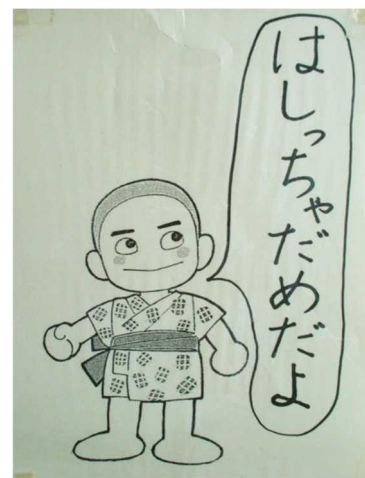 はしっちゃだめだよ